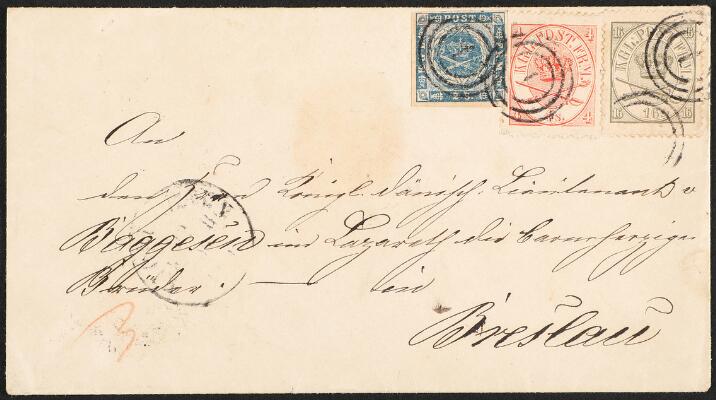 POST
2 S.
KGL. POST FRM.
4
4
4
S.
KGL. POST FRM.
16
16
16
16
1
1
1
An
den Königl. dänisch. Lieutenant v
Baggesen im Lazareth der barmherzige
Brüder. — in
Breslau